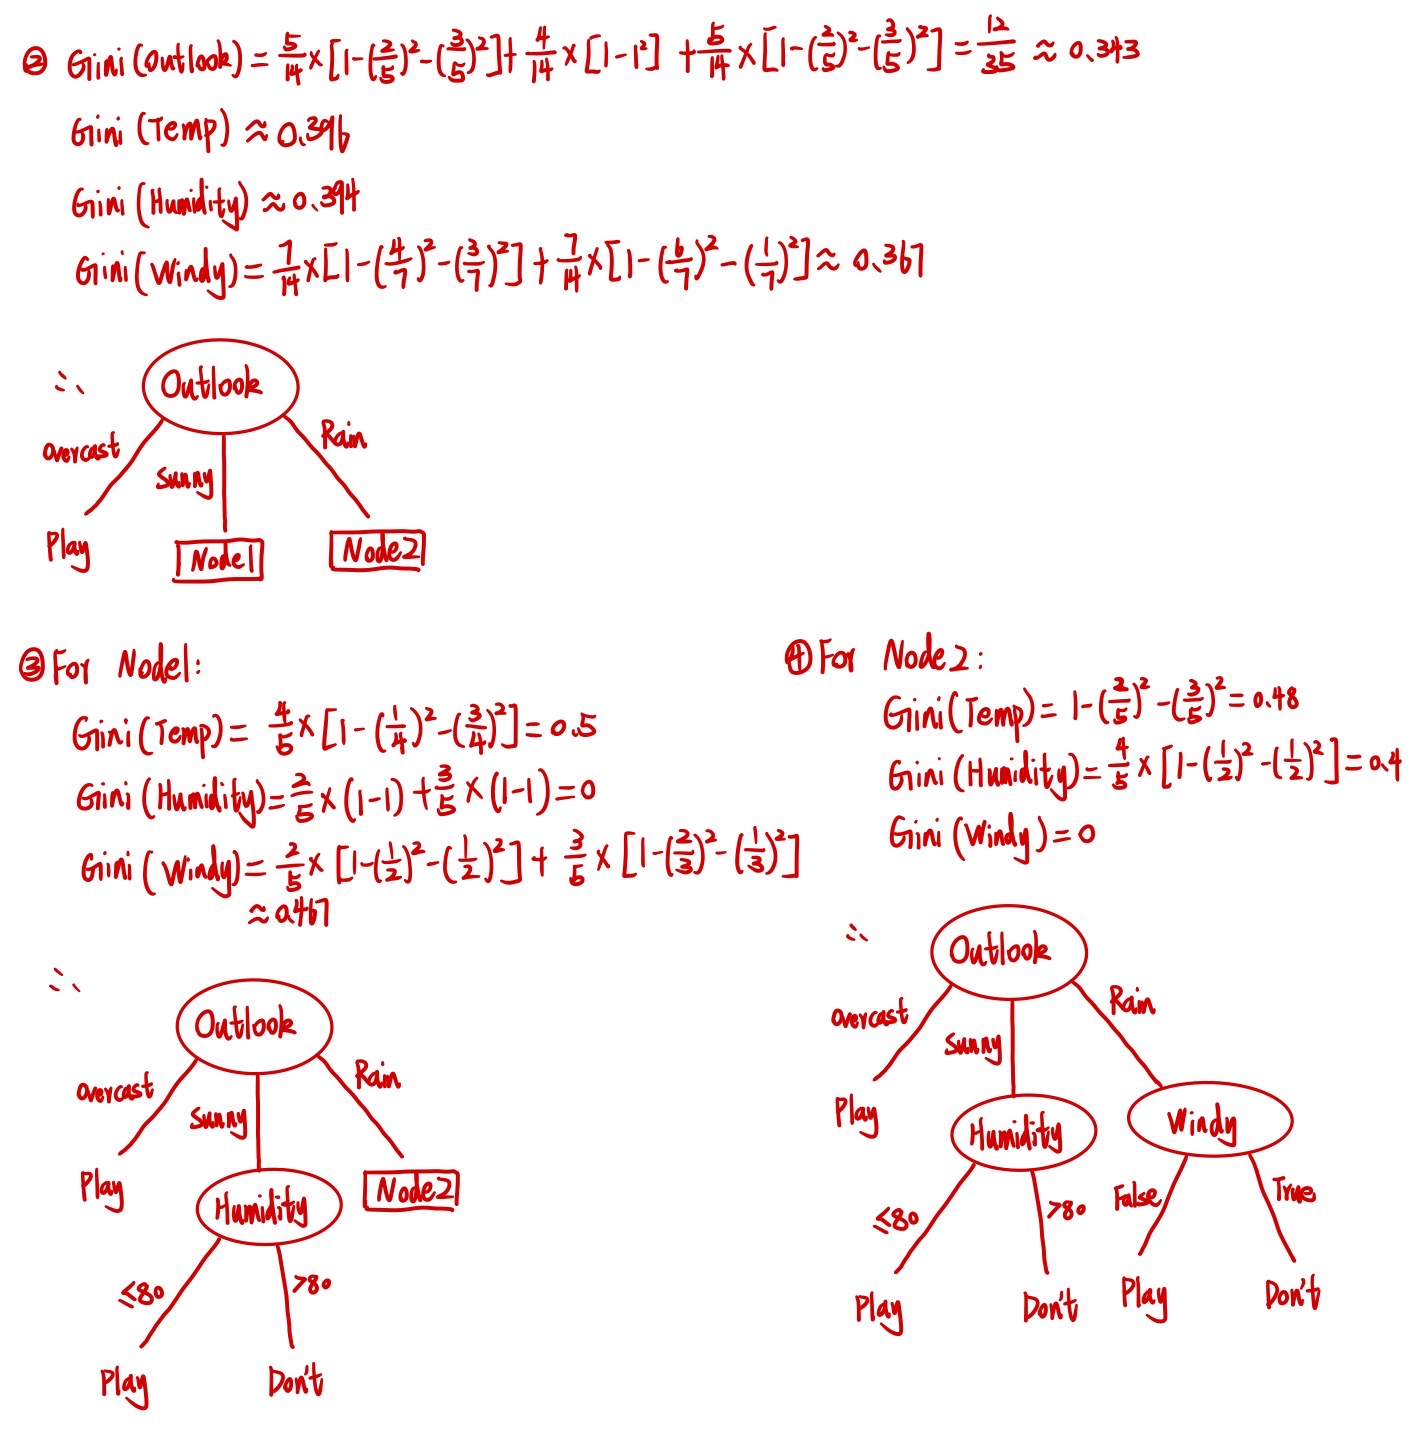 ② Gini(Outlook) = 5/14 × [1-(2/5)² -(3/5)²] + 4/14 × [1-1²] + 5/14 × [1-(2/5)² -(3/5)²] = 12/35 ≈ 0.343
Gini(Temp) ≈ 0.396
Gini(Humidity) ≈ 0.394
Gini(Windy) = 7/14 × [1-(4/7)² -(3/7)²] + 7/14 × [1-(6/7)² -(1/7)²] ≈ 0.367
∴
Outlook
overcast
Sunny
Rain
Play
Node1
Node2
③ For Node1:
Gini(Temp) = 4/5 × [1-(1/4)² -(3/4)²] = 0.5
Gini(Humidity) = 2/5 × (1-1) + 3/5 × (1-1) = 0
Gini(Windy) = 2/5 × [1-(1/2)² -(1/2)²] + 3/5 × [1-(2/3)² -(1/3)²]
≈ 0.467
∴
Outlook
overcast
Sunny
Rain
Play
Humidity
Node2
≤80
>80
Play
Don't
④ For Node2:
Gini(Temp) = 1-(2/5)² -(3/5)² = 0.48
Gini(Humidity) = 4/5 × [1-(1/2)² -(1/2)²] = 0.4
Gini(Windy) = 0
∴
Outlook
overcast
Sunny
Rain
Play
Humidity
Windy
≤80
>80
False
True
Play
Don't
Play
Don't